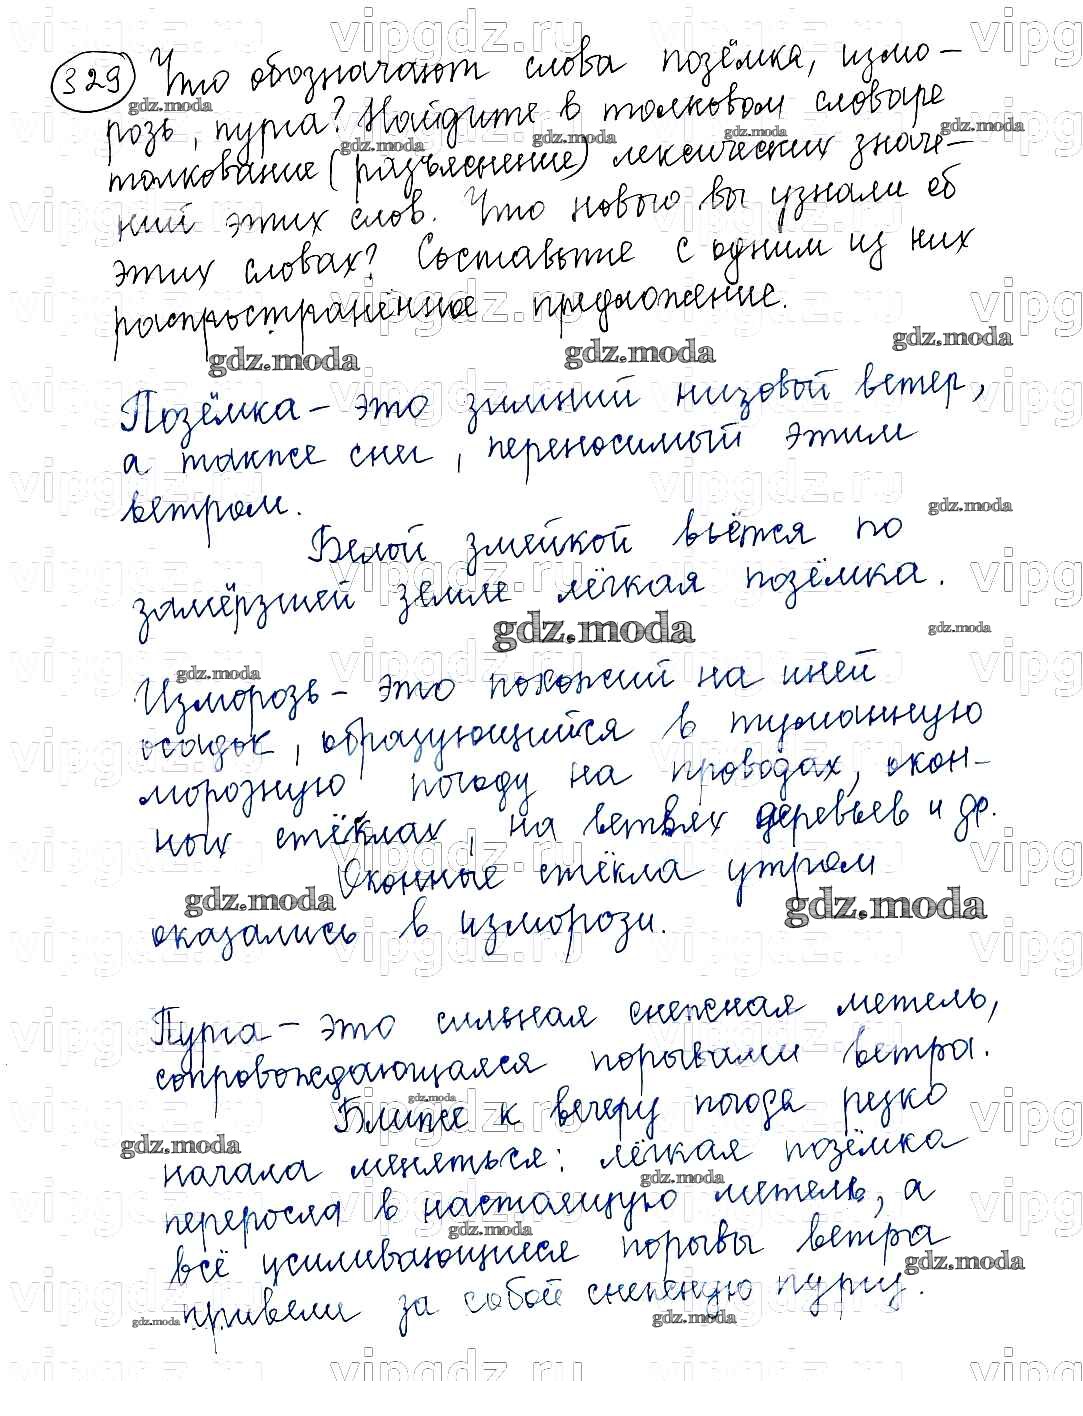 329 Что обозначают слова позёмка, измо-
розь, пурга? Найдите в толковом словаре
толкование (разъяснение) лексических значе-
ний этих слов. Что нового вы узнали об
этих словах? Составьте с одним из них
распространённое предложение.
Позёмка – это зимний низовой ветер,
а также снег, переносимый этим
ветром.
Белой змейкой вьётся по
замёрзшей земле лёгкая позёмка.
Изморозь – это похожий на иней
осадок, образующийся в туманную
морозную погоду на проводах, окон-
ных стёклах, на ветвях деревьев и др.
Оконные стёкла утром
оказались в изморози.
Пурга – это сильная снежная метель,
сопровождающаяся порывами ветра.
Ближе к вечеру погода резко
начала меняться: лёгкая позёмка
переросла в настоящую метель, а
всё усиливающиеся порывы ветра
привели за собой снежную пургу.